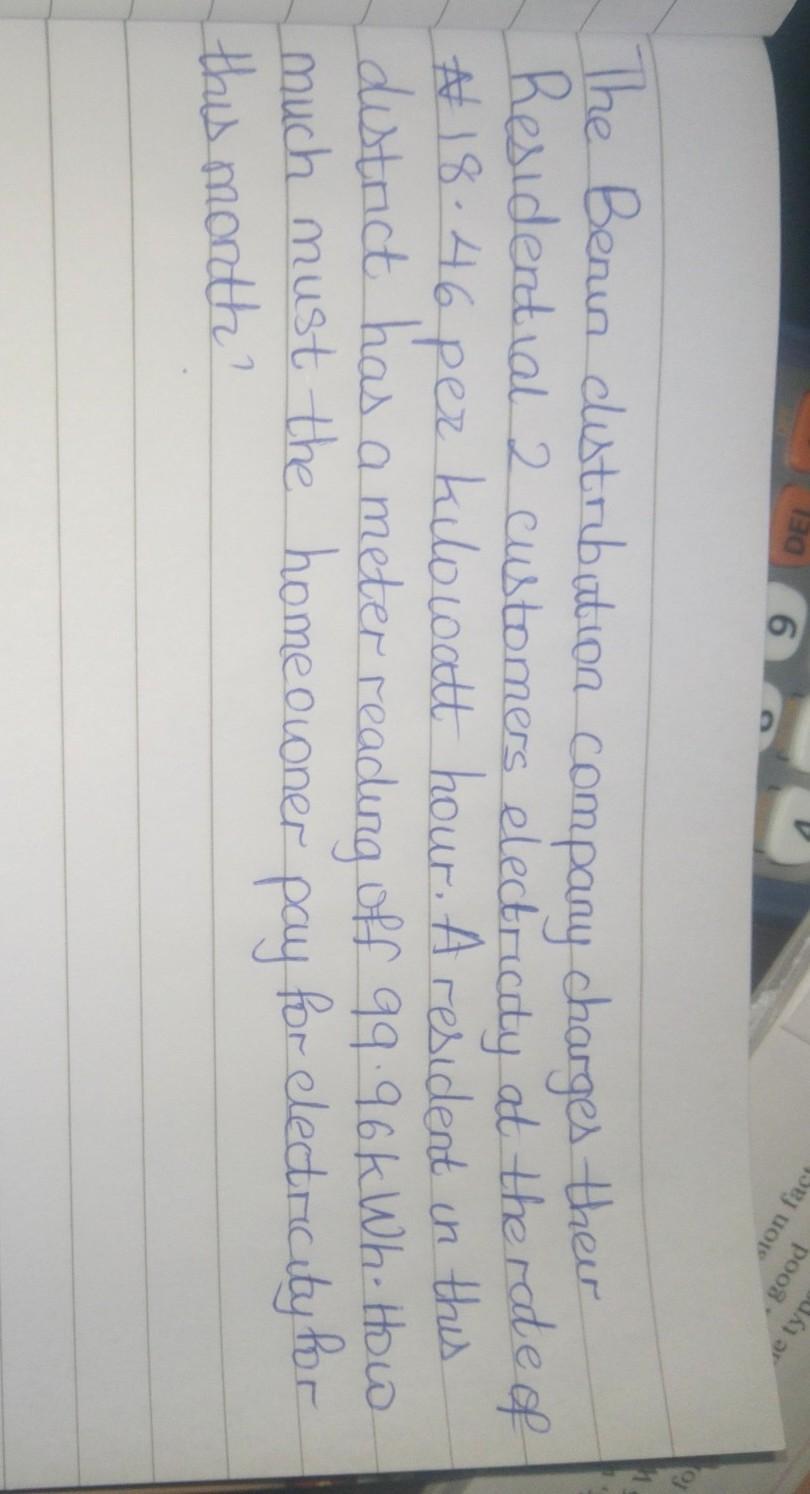 The Benin distribution company charges their
Residential 2 customers electricity at the rate of
₦18.46 per kilowatt hour. A resident in this
district has a meter reading off 99.96kWh. How
much must the homeowner pay for electricity for
this month?
DEL
9
6
sion fact
good
e type
fo